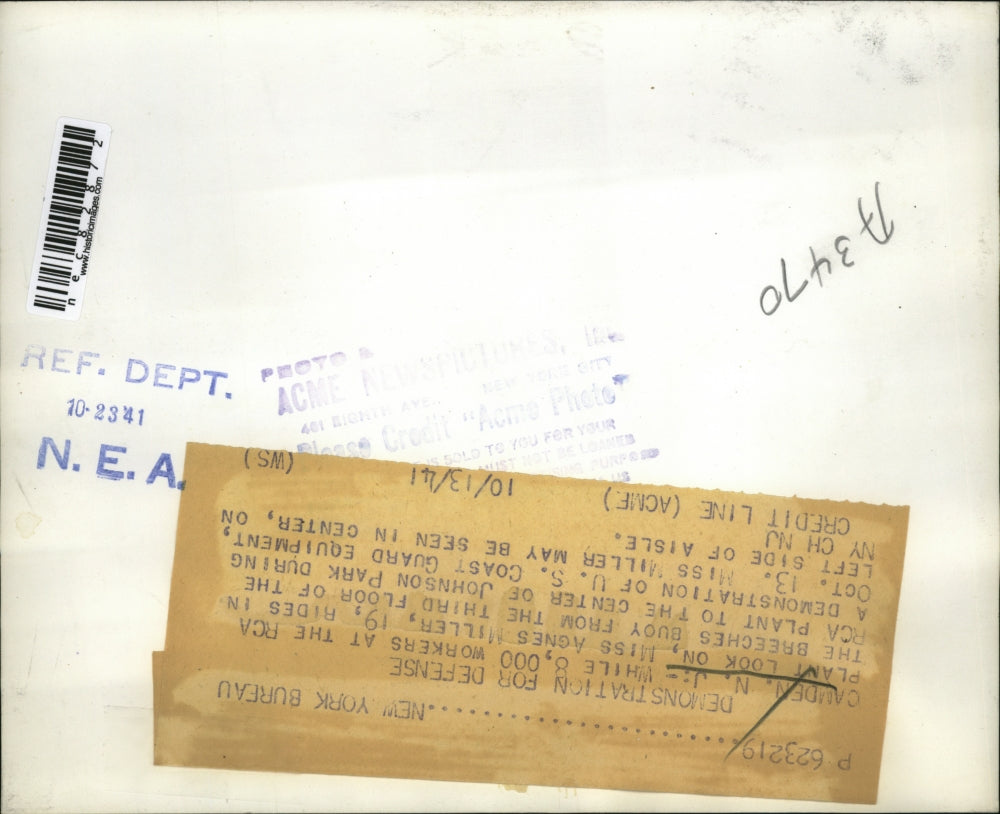 necb2872
www.historicimages.com
A3470
REF. DEPT.
10-23 41
N. E. A.
PHOTO
ACME NEWSPICTURES, Inc.
461 EIGHTH AVE. NEW YORK CITY
Please Credit "Acme Photo"
IS SOLD TO YOU FOR YOUR
MUST NOT BE LOANED
PURPOSE
US
P 623219..........................NEW YORK BUREAU
DEMONSTRATION FOR DEFENSE
CAMDEN. N. J.- WHILE 8,000 WORKERS AT THE RCA
PLANT LOOK ON, MISS AGNES MILLER, 19, RIDES IN
THE BREECHES BUOY FROM THE THIRD FLOOR OF THE
RCA PLANT TO THE CENTER OF JOHNSON PARK DURING
A DEMONSTRATION OF U. S. COAST GUARD EQUIPMENT,
OCT. 13. MISS MILLER MAY BE SEEN IN CENTER, ON
LEFT SIDE OF AISLE.
NY CH NJ
CREDIT LINE (ACME) 10/13/41 (WS)